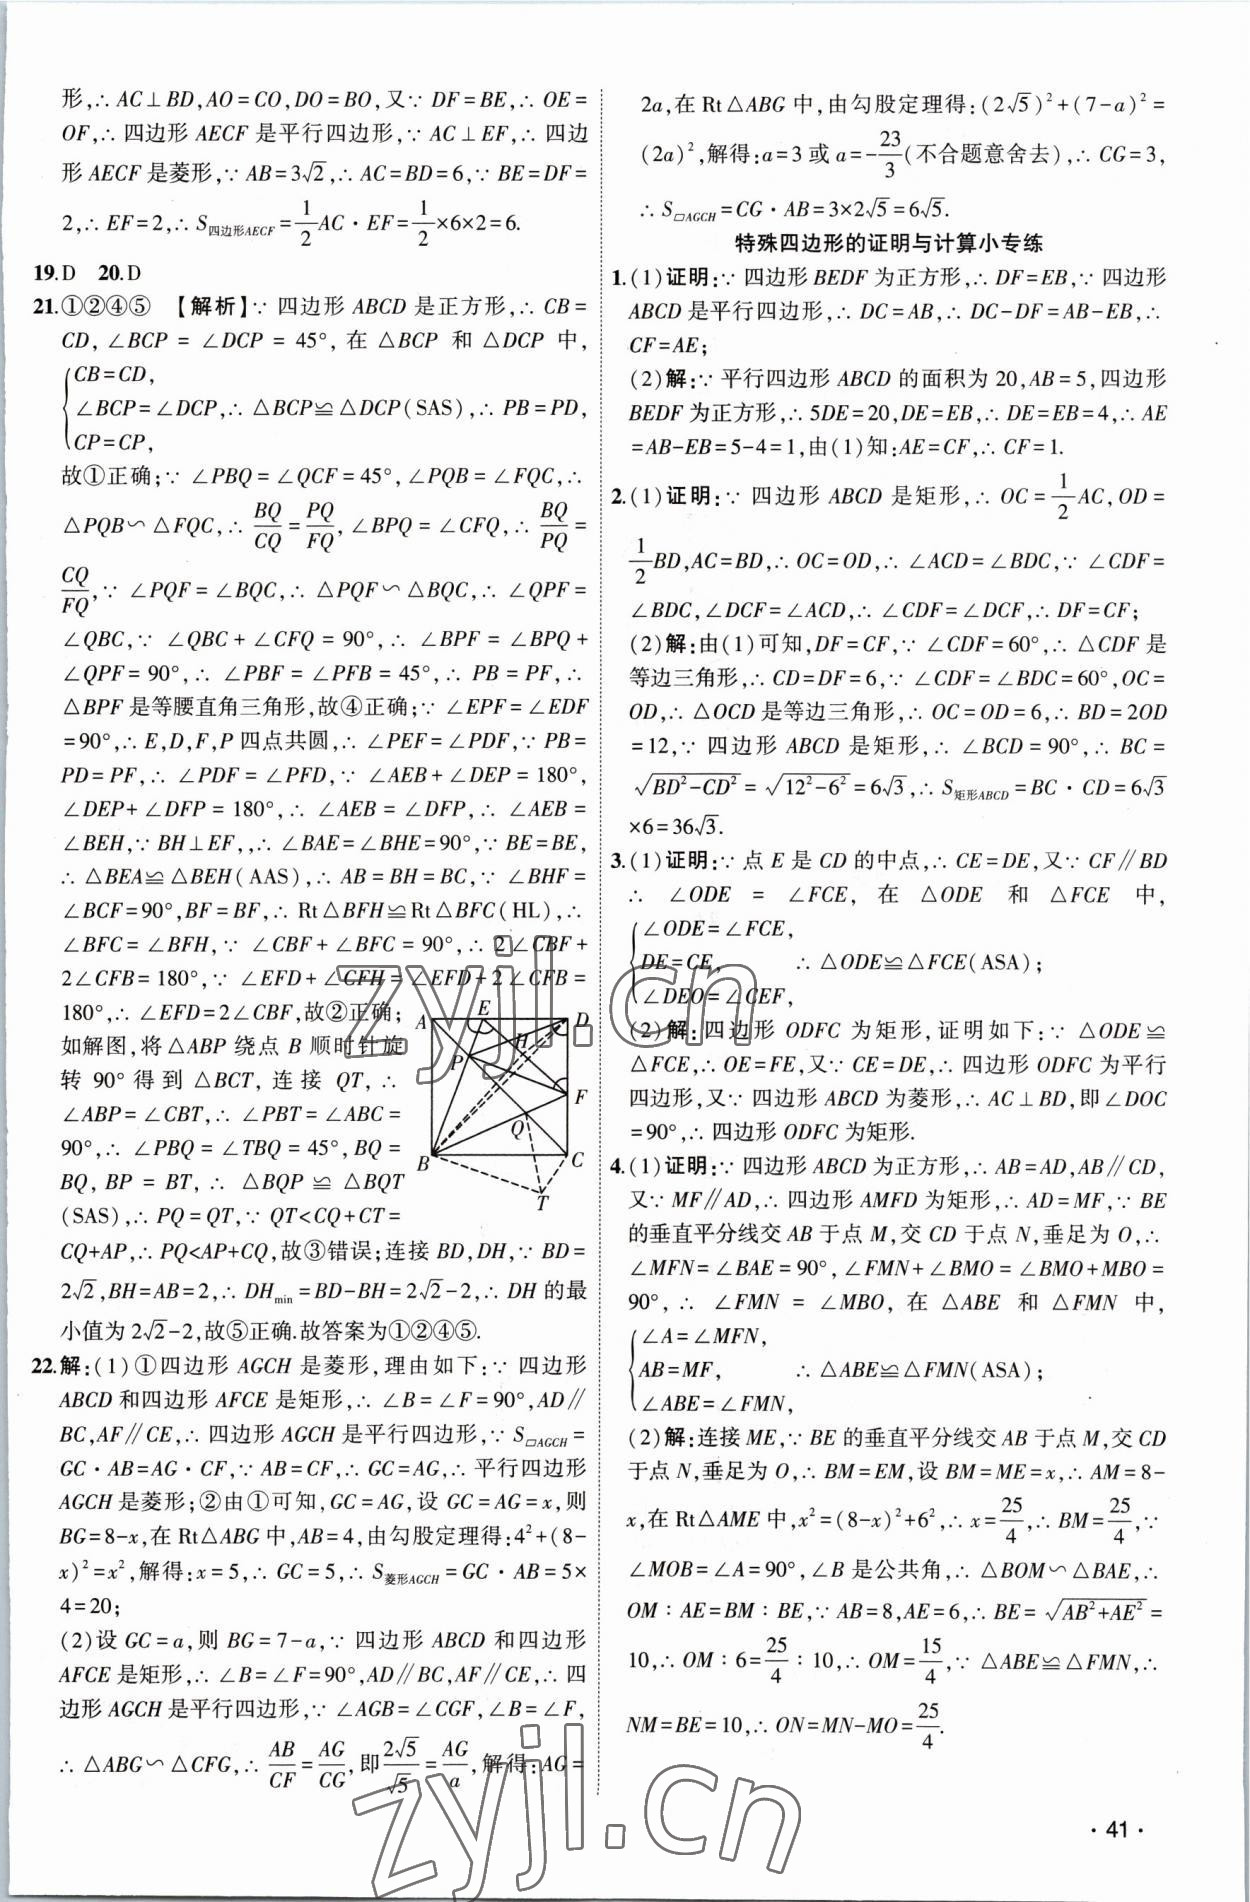 形,∴ AC⊥BD,AO=CO,DO=BO,又∵ DF=BE,∴ OE=
OF,∴ 四边形 AECF 是平行四边形,∵ AC⊥EF,∴ 四边
形 AECF 是菱形,∵ AB=3√2,∴ AC=BD=6,∵ BE=DF=
2,∴ EF=2,∴ S四边形AECF=1/2AC·EF=1/2×6×2=6.
19.D 20.D
21.①②④⑤ 【解析】∵ 四边形 ABCD 是正方形,∴ CB=
CD,∠BCP=∠DCP=45°,在 △BCP 和 △DCP 中,
CB=CD,
∠BCP=∠DCP,∴ △BCP≌△DCP(SAS),∴ PB=PD,
CP=CP,
故①正确;∵ ∠PBQ=∠QCF=45°,∠PQB=∠FQC,∴
△PQB∽△FQC,∴ BQ/CQ=PQ/FQ,∠BPQ=∠CFQ,∴ BQ/PQ=
CQ/FQ,∵ ∠PQF=∠BQC,∴ △PQF∽△BQC,∴ ∠QPF=
∠QBC,∵ ∠QBC+∠CFQ=90°,∴ ∠BPF=∠BPQ+
∠QPF=90°,∴ ∠PBF=∠PFB=45°,∴ PB=PF,∴
△BPF 是等腰直角三角形,故④正确;∵ ∠EPF=∠EDF
=90°,∴ E,D,F,P 四点共圆,∴ ∠PEF=∠PDF,∵ PB=
PD=PF,∴ ∠PDF=∠PFD,∵ ∠AEB+∠DEP=180°,
∠DEP+∠DFP=180°,∴ ∠AEB=∠DFP,∴ ∠AEB=
∠BEH,∵ BH⊥EF,,∴ ∠BAE=∠BHE=90°,∵ BE=BE,
∴ △BEA≌△BEH(AAS),∴ AB=BH=BC,∵ ∠BHF=
∠BCF=90°,BF=BF,∴ Rt△BFH≌Rt△BFC(HL),∴
∠BFC=∠BFH,∵ ∠CBF+∠BFC=90°,∴ 2∠CBF+
2∠CFB=180°,∵ ∠EFD+∠CFH=∠EFD+2∠CFB=
180°,∴ ∠EFD=2∠CBF,故②正确;
如解图,将△ABP 绕点 B 顺时针旋
转 90°得到 △BCT,连接 QT,∴
∠ABP=∠CBT,∴ ∠PBT=∠ABC=
90°,∴ ∠PBQ=∠TBQ=45°,BQ=
BQ,BP=BT,∴ △BQP≌△BQT
(SAS),∴ PQ=QT,∵ QT<CQ+CT=
CQ+AP,∴ PQ<AP+CQ,故③错误;连接 BD,DH,∵ BD=
2√2,BH=AB=2,∴ DHmin=BD-BH=2√2-2,∴ DH 的最
小值为 2√2-2,故⑤正确.故答案为①②④⑤.
A E D
P H
F
Q
B C
T
22.解:(1)①四边形 AGCH 是菱形,理由如下:∵ 四边形
ABCD 和四边形 AFCE 是矩形,∴ ∠B=∠F=90°,AD∥
BC,AF∥CE,∴ 四边形 AGCH 是平行四边形,∵ S▱AGCH=
GC·AB=AG·CF,∵ AB=CF,∴ GC=AG,∴ 平行四边形
AGCH 是菱形;②由①可知,GC=AG,设 GC=AG=x,则
BG=8-x,在 Rt△ABG 中,AB=4,由勾股定理得:4²+(8-
x)²=x²,解得:x=5,∴ GC=5,∴ S菱形AGCH=GC·AB=5×
4=20;
(2)设 GC=a,则 BG=7-a,∵ 四边形 ABCD 和四边形
AFCE 是矩形,∴ ∠B=∠F=90°,AD∥BC,AF∥CE,∴ 四
边形 AGCH 是平行四边形,∵ ∠AGB=∠CGF,∠B=∠F,
∴ △ABG∽△CFG,∴ AB/CF=AG/CG,即2√5/√5=AG/a,解得:AG=
2a,在 Rt△ABG 中,由勾股定理得:(2√5)²+(7-a)²=
(2a)²,解得:a=3 或 a=-23/3(不合题意舍去),∴ CG=3,
∴ S▱AGCH=CG·AB=3×2√5=6√5.
特殊四边形的证明与计算小专练
1.(1)证明:∵ 四边形 BEDF 为正方形,∴ DF=EB,∵ 四边形
ABCD 是平行四边形,∴ DC=AB,∴ DC-DF=AB-EB,∴
CF=AE;
(2)解:∵ 平行四边形 ABCD 的面积为 20,AB=5,四边形
BEDF 为正方形,∴ 5DE=20,DE=EB,∴ DE=EB=4,∴ AE
=AB-EB=5-4=1,由(1)知:AE=CF,∴ CF=1.
2.(1)证明:∵ 四边形 ABCD 是矩形,∴ OC=1/2AC,OD=
1/2BD,AC=BD,∴ OC=OD,∴ ∠ACD=∠BDC,∵ ∠CDF=
∠BDC,∠DCF=∠ACD,∴ ∠CDF=∠DCF,∴ DF=CF;
(2)解:由(1)可知,DF=CF,∵ ∠CDF=60°,∴ △CDF 是
等边三角形,∴ CD=DF=6,∵ ∠CDF=∠BDC=60°,OC=
OD,∴ △OCD 是等边三角形,∴ OC=OD=6,∴ BD=2OD
=12,∵ 四边形 ABCD 是矩形,∴ ∠BCD=90°,∴ BC=
√(BD²-CD²)=√(12²-6²)=6√3,∴ S矩形ABCD=BC·CD=6√3
×6=36√3.
3.(1)证明:∵ 点 E 是 CD 的中点,∴ CE=DE,又∵ CF∥BD
∴ ∠ODE=∠FCE,在 △ODE 和 △FCE 中,
∠ODE=∠FCE,
DE=CE, ∴ △ODE≌△FCE(ASA);
∠DEO=∠CEF,
(2)解:四边形 ODFC 为矩形,证明如下:∵ △ODE≌
△FCE,∴ OE=FE,又∵ CE=DE,∴ 四边形 ODFC 为平行
四边形,又∵ 四边形 ABCD 为菱形,∴ AC⊥BD,即∠DOC
=90°,∴ 四边形 ODFC 为矩形.
4.(1)证明:∵ 四边形 ABCD 为正方形,∴ AB=AD,AB∥CD,
又∵ MF∥AD,∴ 四边形 AMFD 为矩形,∴ AD=MF,∵ BE
的垂直平分线交 AB 于点 M,交 CD 于点 N,垂足为 O,∴
∠MFN=∠BAE=90°,∠FMN+∠BMO=∠BMO+MBO=
90°,∴ ∠FMN=∠MBO,在 △ABE 和 △FMN 中,
∠A=∠MFN,
AB=MF, ∴ △ABE≌△FMN(ASA);
∠ABE=∠FMN,
(2)解:连接 ME,∵ BE 的垂直平分线交 AB 于点 M,交 CD
于点 N,垂足为 O,∴ BM=EM,设 BM=ME=x,∴ AM=8-
x,在 Rt△AME 中,x²=(8-x)²+6²,∴ x=25/4,∴ BM=25/4,∵
∠MOB=∠A=90°,∠B 是公共角,∴ △BOM∽△BAE,∴
OM∶AE=BM∶BE,∵ AB=8,AE=6,∴ BE=√(AB²+AE²)=
10,∴ OM∶6=25/4∶10,∴ OM=15/4,∵ △ABE≌△FMN,∴
NM=BE=10,∴ ON=MN-MO=25/4.
zyjl.cn
zyjl.cn
·41·